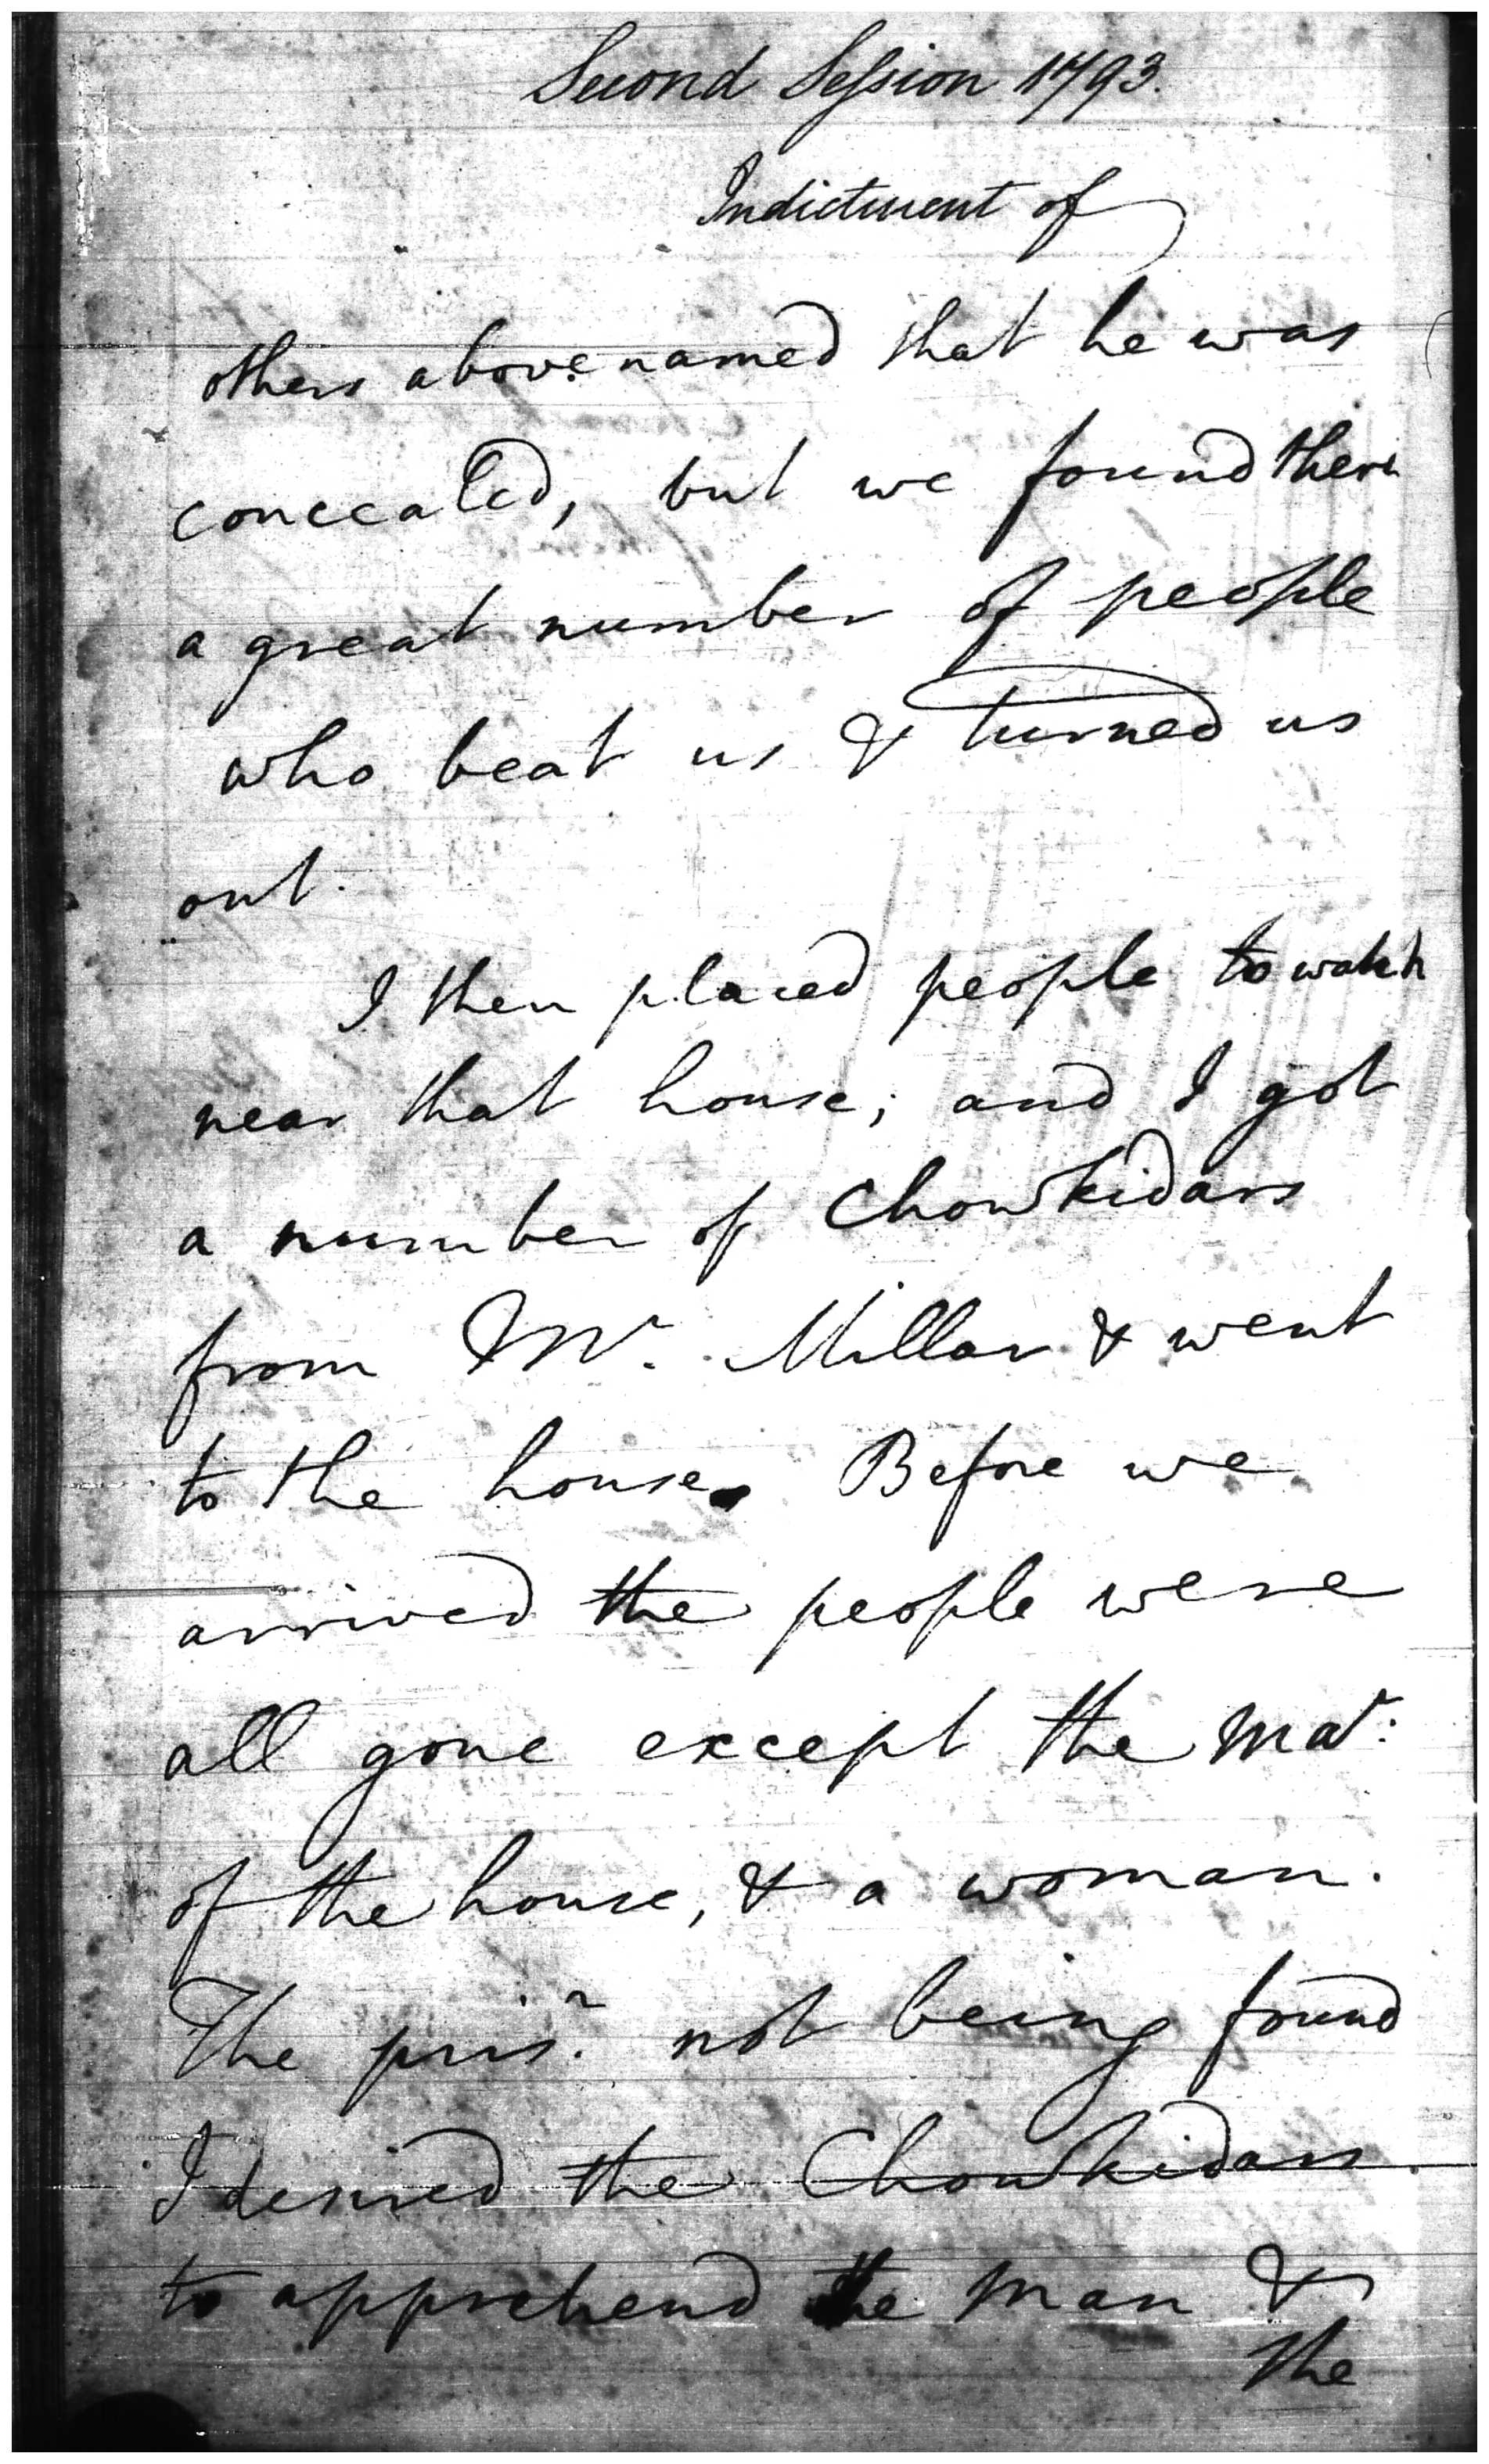 Second Session 1793.
Indictment of
others above named that he was
concealed, but we found there
a great number of people
who beat us & turned us
out.
I then placed people to watch
near that house; and I got
a number of Chowkidars
from Mr. Millar & went
to the house. Before we
arrived the people were
all gone except the Mar:
of the house, & a woman.
The prisr. not being found
I desired the Chowkidars
to apprehend the man &
the